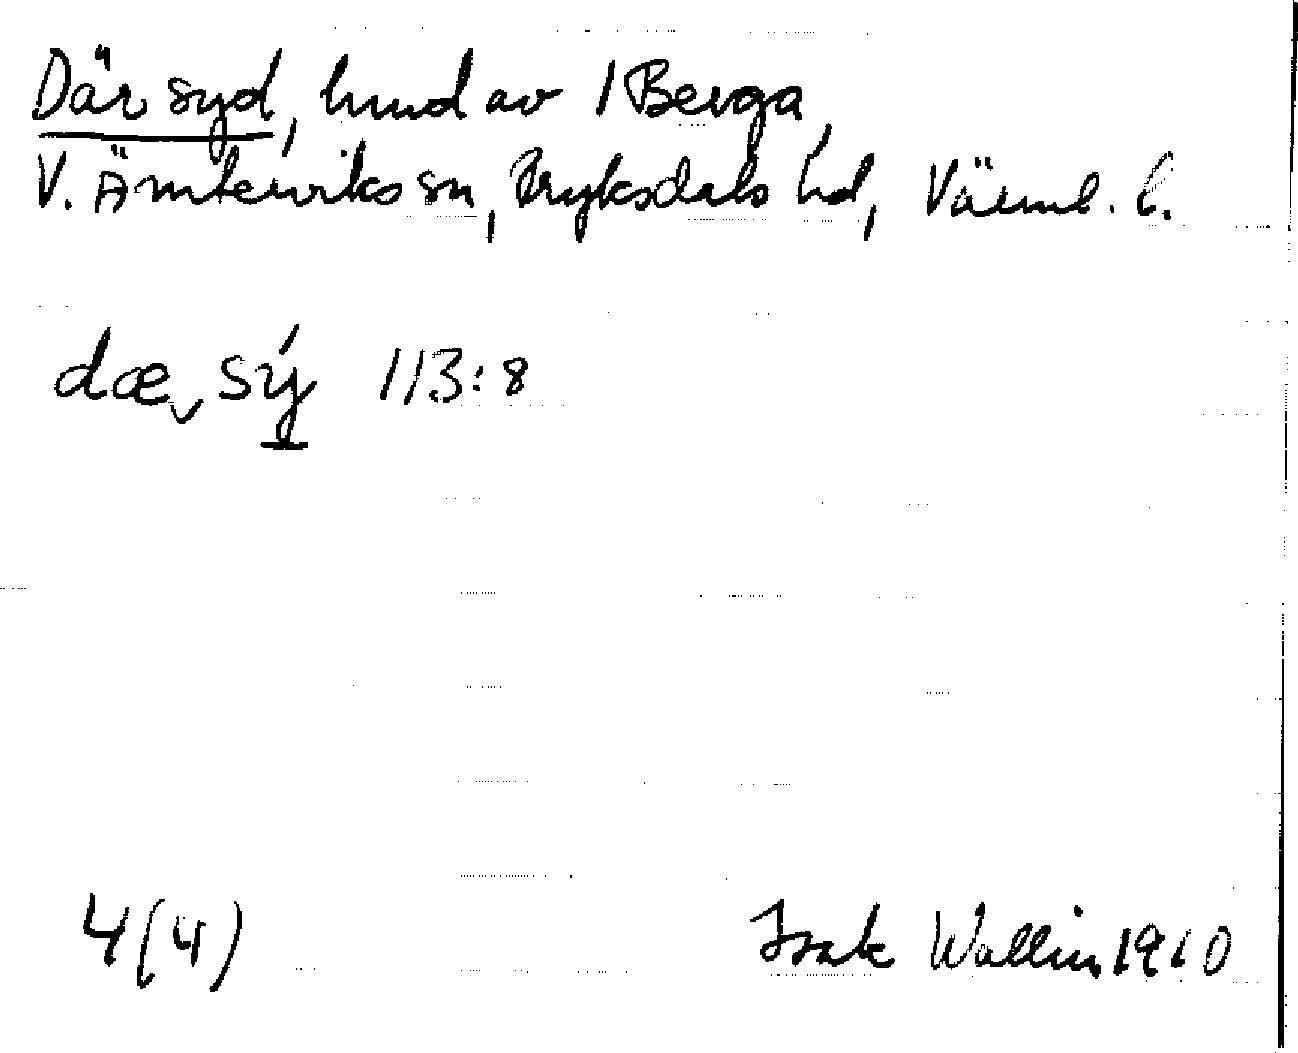 Där syd, hmd av 1 Berga,
V. Ämterviks sn, Fryksdals hd, Värml. l.
dæ˅ sý 113:8
4(4)
Isak Wallin 1910